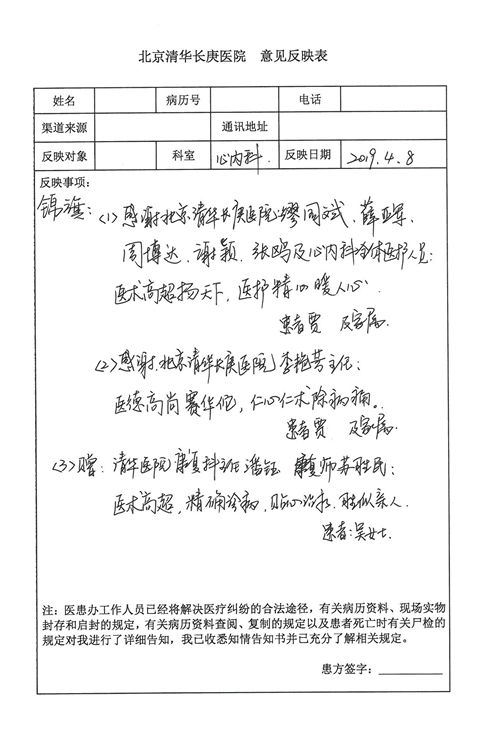 北京清华长庚医院 意见反映表
姓名 病历号 电话
渠道来源 通讯地址
反映对象 科室 心内科. 反映日期 2019.4.8
反映事项:
锦旗: (1)感谢北京清华长庚医院心缪国斌、薛亚军、
周博达、谢颖、张鸥及心内科全体医护人员:
医术高超扬天下, 医护精心暖人心.
患者贾 及家属.
(2)感谢北京清华长庚医院 李艳芳主任:
医德高尚赛华佗, 仁心仁术除病痛。
患者贾 及家属.
(3)赠: 清华医院康复科主任潘钰 康复师苏胜民:
医术高超, 精确诊病, 贴心治疗, 胜似亲人.
患者:吴女士.
注:医患办工作人员已经将解决医疗纠纷的合法途径,有关病历资料、现场实物
封存和启封的规定,有关病历资料查阅、复制的规定以及患者死亡时有关尸检的
规定对我进行了详细告知,我已收悉知情告知书并已充分了解相关规定。
患方签字: